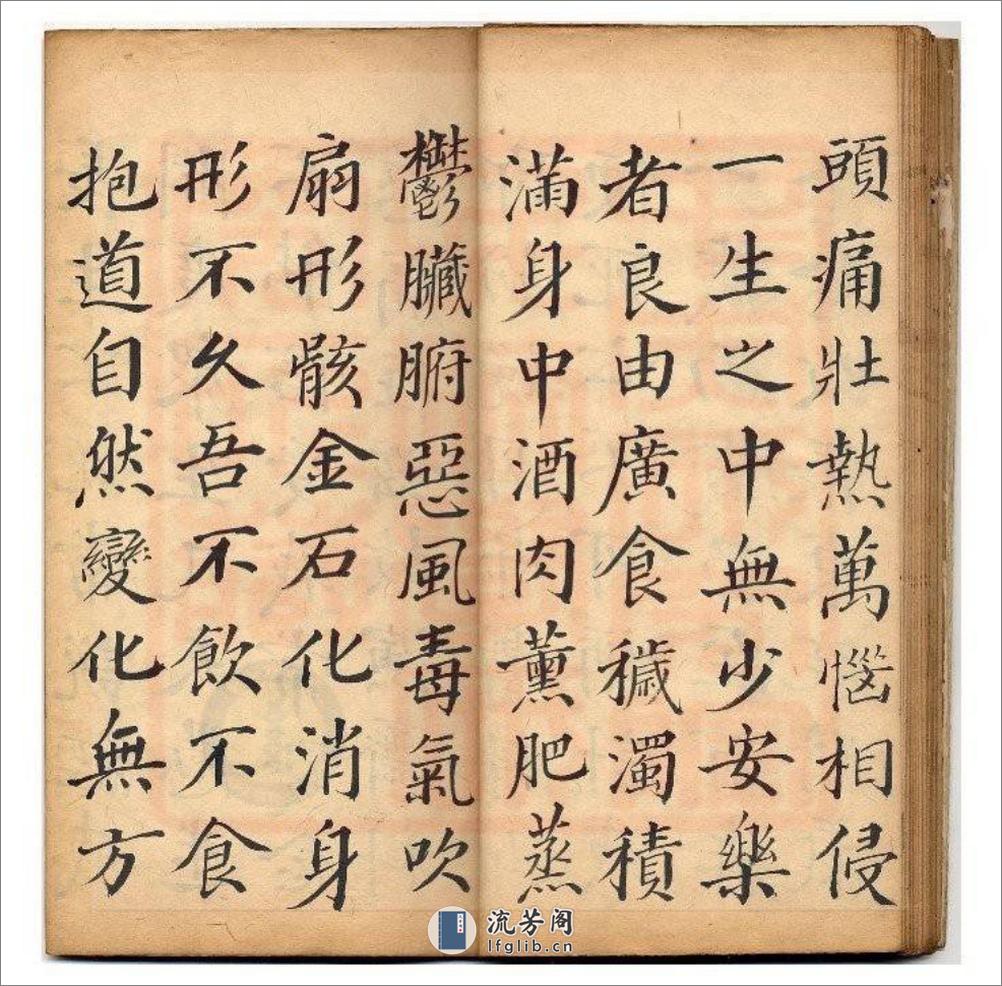 頭痛壯熱萬惱相侵
一生之中無少安樂
者良由廣食穢濁積
滿身中酒肉薰肥蒸
鬱臟腑惡風毒氣吹
扇形骸金石化消身
形不久吾不飲不食
抱道自然變化無方
流芳阁
lfglib.cn